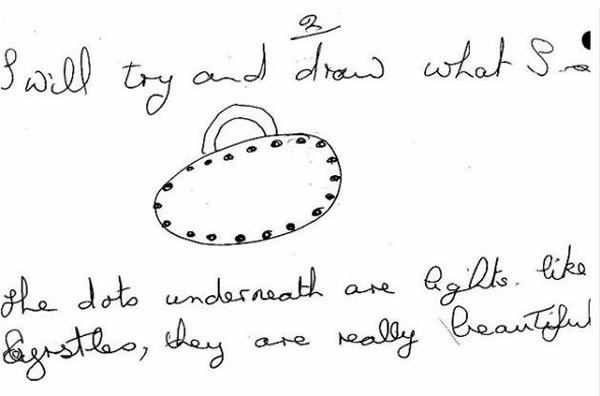 2
I will try and draw what I
The dots underneath are lights. like
they are really beautiful